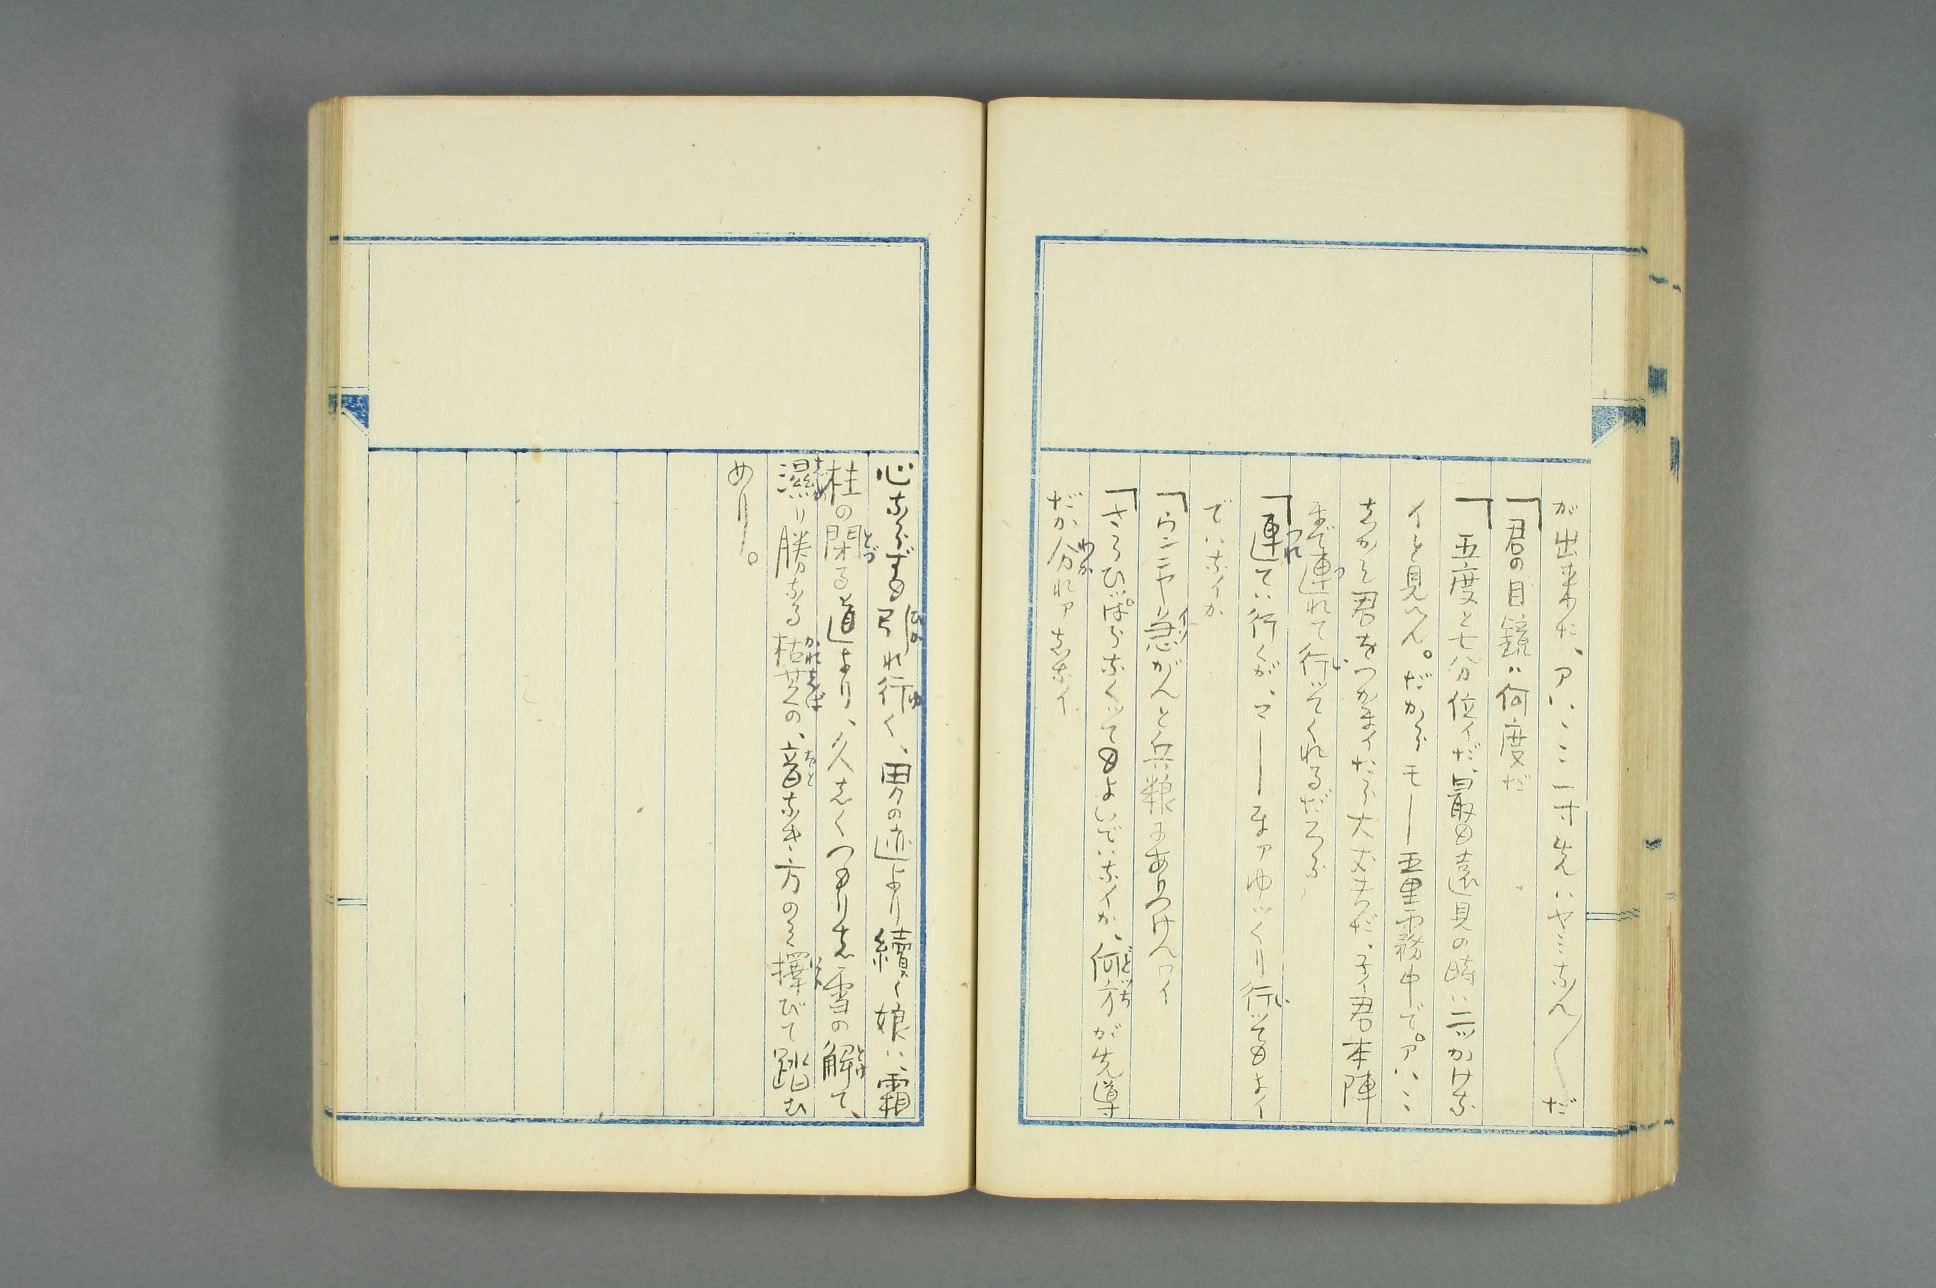 が出来た、アハヽヽ一寸先ハヤミなん〳〵だ
「君の目鏡ハ何度だ
「五度と七分位イだ、最も遠見の時ハ二ツかけな
イと見へん。だからモー五里霧中で。アハヽヽ
しかし君をつかまイたら大丈夫だ、子イ君本陣
まで連れて行ッてくれるだろふ
「連てハ行くが、マーまアゆッくり行ッてもよイ
でハないか
「ウンニヤ急がんと兵粮にありつけんワイ
「さうひッぱらなくッてもよいでハなイか、何方が先導
だか分れアしなイ
心ならずも引れ行く、男の迹より續く娘ハ、霜
柱の閉る道より、久しくつもりし雪の解て、
濕り勝なる枯芝の、音なき方のミ擇びて踏む
めり。